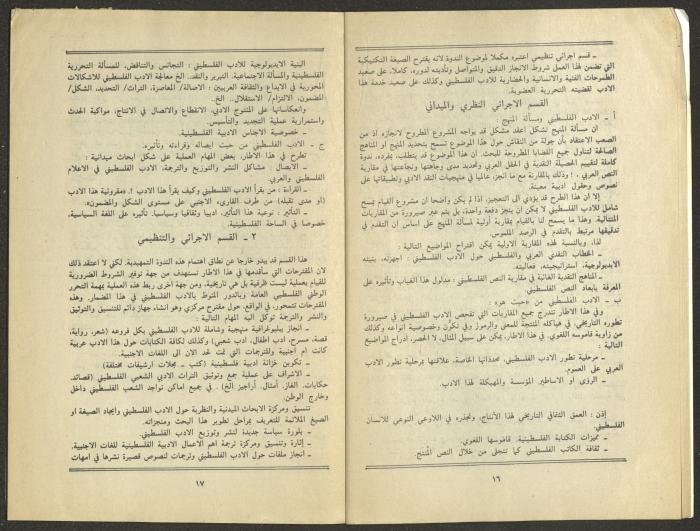 ـ قسم اجرائي تنظيمي اعتبره مكملا لموضوع الندوة لانه يقترح الصيغة التكتيكية
التي تضمن لهذا العمل شروط الانجاز الدقيق والمتواصل وتأديته لدوره، كاملا، على صعيد
الطموحات الفنية والانسانية والحضارية للادب الفلسطيني، وكذلك على صعيد خدمة هذا
الادب لقضيته التحررية العضوية.
القسم الاجرائي النظري والميداني
أ ـ الادب الفلسطيني ومسألة المنهج :
ان مسألة المنهج تشكل اعقد مشكل قد يواجه المشروع المطروح لانجازه اذ من
الصعب الاعتقاد بأن جولة من النقاش حول هذا الموضوع تسمح بتحديد المنهج او المناهج
الصالحة لتناول جميع القضايا المطروحة للبحث. ان هذا الموضوع قد يتطلب، بمفرده، ندوة
كاملة لتقييم الحصيلة النقدية في الحقل العربي وتحديد مدى وجاهتها ونجاعتها في مقاربة
النص العربي ، ! وذلك بالمقارنة مع ما انجز، عالميا في منهجيات النقد الادبي وتطبيقاتها على
نصوص وحقول ادبية معينة.
إلا ان هذا الطرح قد يؤدي الى التعجيز، اذا لم يكن واضحا ان مشروع القيام بمسح
شامل للادب الفلسطيني لا يمكن ان ينجز دفعة واحدة، بل يتم عبر صيرورة من المقاربات
المتتالية. وهذا ما يسمح لنا بالقيام بمقاربة أولية لمسألة المنهج على اساس ان التقدم في
تدقيقها مرتبط بالتقدم في الرصد الملموس.
لذا، وبالنسبة لهذه المقاربة الاولية يمكن اقتراح المواضيع التالية :
ـ الخطاب النقدي العربي والفلسطيني حول الادب الفلسطيني : اجهزته، بنيته
الايديولوجية، استراتيجيته، فعاليته.
ـ المناهج النقدية الغائبة في مقاربة النص الفلسطيني : مدلول هذا الغياب وتأثيره على
المعرفة بأبعاد النص الفلسطيني.
ب ـ الادب الفلسطيني من «حيث هو» :
وفي هذا الاطار تندرج جميع المقاربات التي تفحص الادب الفلسطيني في صيرورة
تطوره التاريخي، في هياكله المنتجة للمعنى والرموز وفي تكون وخصوصية انواعه وكذلك
من زاوية قاموسه اللغوي. في هذا الاطار، يمكن على سبيل المثال، لا الحصر، ادراج المواضيع
التالية :
ـ مرحلية تطور الادب الفلسطيني، محدداتها الخاصة، علاقتها بمرحلية تطور الادب
العربي على العموم.
ـ الرؤى او الاساطير المؤسسة والمهيكلة لهذا الادب.
إذن : العمق الثقافي التاريخي لهذا الأنتاج، وتجذره في اللاوعي النوعي للانسان
الفلسطيني.
ـ مميزات الكتابة الفلسطينية. قاموسها اللغوي.
ـ ثقافة الكاتب الفلسطيني كما تتجلى من خلال النص المنتج.
١٦
البنية الايديولوجية للادب الفلسطيني : التجانس والتناقض، المسألة التحررية
الفلسطينية والمسألة الاجتماعية. التبرير والنقد.. الخ معالجة الادب الفلسطيني للاشكالات
المحورية في الابداع والثقافة العربيين : الاصالة/ المعاصرة، التراث/ التحديد، الشكل/
المضمون، الالتزام/ الاستقلال.. الخ.
وانعكاساتها على المنتوج الادبي. الانقطاع والاتصال في الانتاج، مواكبة الحدث
واستمرارية عملية التجديد والتأسيس.
ـ خصوصية الاجناس الادبية الفلسطينية.
ج ـ الادب الفلسطيني من حيث ايصاله وقراءته وتأثيره.
تطرح في هذا الاطار، بعض المهام العملية على شكل ابحاث ميدانية :
ـ الايصال : مشاكل النشر والتوزيع والترجمة. الادب الفلسطيني في الاعلام
الفلسطيني والعربي.
ـ القراءة : من يقرأ الادب الفلسطيني وكيف يقرأ هذا الادب ؟. «مقروئية هذا الادب
(او مدى تقبله) من طرف القارىء الاجنبي على مستوى الشكل والمضمون».
ـ التأثير : نوعية هذا التأثير، ادبيا وثقافيا وسياسيا. تأثيره على اللغة السياسية،
خصوصا في الساحة الفلسطينية.
٢ ـ القسم الاجرائي والتنظيمي
هذا القسم قد يبدو خارجا عن نطاق اهتمام هذه الندوة التمهيدية. لكني لا اعتقد ذلك
لان المقترحات التي سأقدمها في هذا الاطار تستهدف من جهة توفير الشروط الضرورية
للقيام بعملية ليست ظرفية بل هي تاريخية، ومن جهة اخرى ربط هذه العملية بمهمة التحرر
الوطني الفلسطيني العامة وبالدور المنوط بالادب الفلسطيني في هذا المضمار. وهذه
المقترحات تتمحور، في الواقع، حول مقترح مركزي وهو انشاء جهاز دائم للتنسيق والتوثيق
والنشر والترجمة توكل اليه المهام التالية :
ـ انجاز بيبليوغرافية منهجية وشاملة للادب الفلسطيني بكل فروعه (شعر، رواية،
قصة، مسرح، ادب اطفال، ادب شعبي) وكذلك لكافة الكتابات حول هذا الادب عربية
كانت ام أجنبية والمترجمات التي تمت لحد الان الى اللغات الاجنبية.
ـ تكوين خزانة ادبية فلسطينية (كتب ـ مجلات ارشيفات مختلفة)
ـ الاشراف على عملية جمع وتوثيق التراث الادبي الشعبي الفلسطيني (قصائد،
حكايات. الغاز. أمثال. أراجيز. الخ) .. في جميع اماكن تواجد الشعب الفلسطيني داخل
وخارج الوطن.
تنسيق ومركزة الابحاث الميدنية والنظرية حول الادب الفلسطيني وايجاد الصيغة او
الصيغ الملائمة للتعريف بمراحل تطوير هذا البحث ومنجزاته.
ـ بلورة سياسة جديدة لنشر وتوزيع الادب الفلسطيني.
ـ إثارة وتنسيق ومركزة ترجمة اهم الاعمال الادبية الفلسطينية للغات الاجنبية.
ـ انجاز ملفات حول الادب الفلسطيني وترجمات لنصوص قصيرة نشرها في امهات
١٧